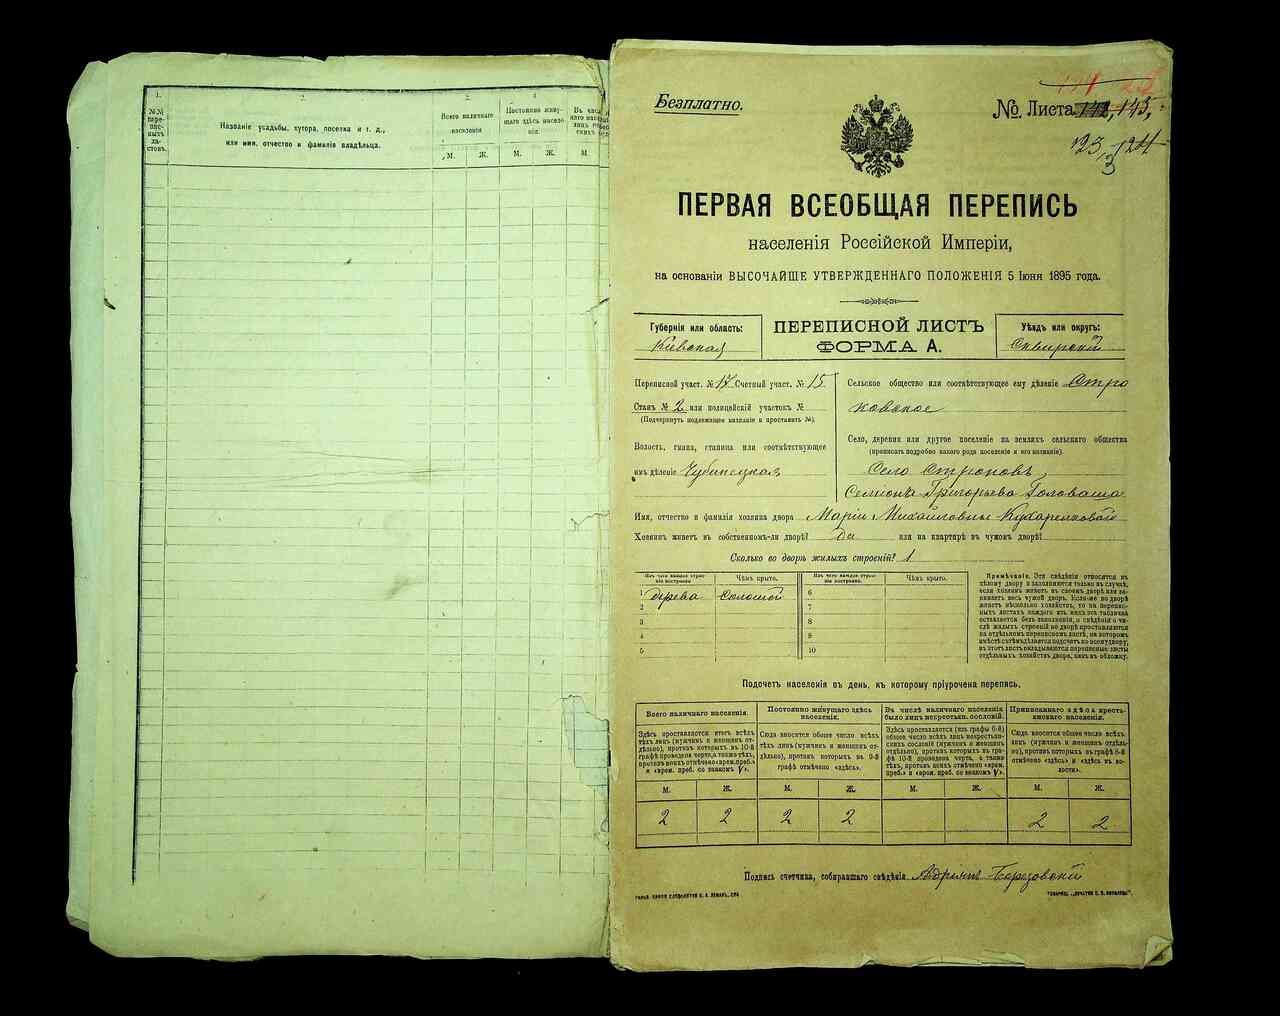 1.
2.
3.
4
№№ пере-
пис-
ныхъ
ли-
стовъ.
Названіе усадьбы, хутора, поселка и т. д.,
или имя, отчество и фамилія владѣльца.
Всего наличнаго
населенія
Постоянно живу-
щаго здѣсь населе-
нія.
М. Ж. М. Ж. М.
Безплатно.
№ Листа 142, 145,
23 124
3
ПЕРВАЯ ВСЕОБЩАЯ ПЕРЕПИСЬ
населенія Россійской Имперіи,
на основаніи ВЫСОЧАЙШЕ УТВЕРЖДЕННАГО ПОЛОЖЕНІЯ 5 Іюня 1895 года.
Губернія или область:
Кіевская
ПЕРЕПИСНОЙ ЛИСТЪ
ФОРМА А.
Уѣздъ или округъ:
Сквирскій
Переписной участ. № 17 Счетный участ. № 15
Станъ № 2 или полицейскій участокъ №
(Подчеркнуть подлежащее названіе и проставить №).
Волость, гмина, станица или соотвѣтствующее
имъ дѣленіе Чубинецкая
Сельское общество или соотвѣтствующее ему дѣленіе Стро
ковское
Село, деревня или другое поселеніе на земляхъ сельскаго общества
(прописать подробно какого рода поселеніе и его названіе).
Село Строковъ
Семіона Григорьева Головаша
Имя, отчество и фамилія хозяина двора Маріи Михайловны Кухаренковой
Хозяинъ живетъ въ собственномъ-ли дворѣ? да или на квартирѣ въ чужомъ дворѣ?
Сколько во дворѣ жилыхъ строеній? 1
Изъ чего каждое строе-
ніе построено
Чѣмъ крыто.
Изъ чего каждое строе-
ніе построено.
Чѣмъ крыто.
1 дерева соломой 6
2 7
3 8
4 9
5 10
Примѣчаніе. Эти свѣдѣнія относятся къ
цѣлому двору и заполняются только въ случаѣ,
если хозяинъ живетъ въ своемъ дворѣ или за-
нимаетъ весь чужой дворъ. Если-же во дворѣ
живетъ нѣсколько хозяйствъ, то на перепис-
ныхъ листахъ каждаго изъ нихъ эта табличка
оставляется безъ заполненія, а свѣдѣнія о чи-
слѣ жилыхъ строеній во дворѣ проставляются
на отдѣльномъ переписномъ листѣ, на которомъ
вмѣстѣ съ тѣмъ дѣлается подсчетъ по всему двору,
и въ этотъ листъ вкладываются переписные листы
отдѣльныхъ хозяйствъ двора, какъ въ обложку.
Подсчетъ населенія въ день, къ которому пріурочена перепись.
Всего наличнаго населенія.
Постоянно живущаго здѣсь
населенія.
Въ числѣ наличнаго населенія
было лицъ некрестьян. сословій.
Приписаннаго здѣсь кресть-
янскаго населенія.
Здѣсь проставляется итогъ всѣхъ
тѣхъ лицъ (мужчинъ и женщинъ от-
дѣльно), противъ которыхъ въ 10-й
графѣ проведена черта, а также тѣхъ,
противъ коихъ отмѣчено «врем. преб.»
и «врем. преб. со знакомъ V».
Сюда вносится общее число всѣхъ
тѣхъ лицъ (мужчинъ и женщинъ от-
дѣльно), противъ которыхъ въ 9-й
графѣ отмѣчено «здѣсь».
Здѣсь проставляется (изъ графы 6-й)
общее число всѣхъ лицъ некрестьян-
скихъ сословій (мужчинъ и женщинъ
отдѣльно), противъ которыхъ въ гра-
фѣ 10-й проведена черта, а также
тѣхъ, противъ коихъ отмѣчено «врем.
преб.» и «врем. преб. со знакомъ V».
Сюда вносится общее число всѣхъ
лицъ (мужчинъ и женщинъ отдѣль-
но), противъ которыхъ въ графѣ 8-й
отмѣчено «здѣсь» и «здѣсь въ во-
лости».
М. Ж. М. Ж. М. Ж. М. Ж.
2 2 2 2 2 2
Подпись счетчика, собиравшаго свѣдѣнія Адріянъ Березовскій